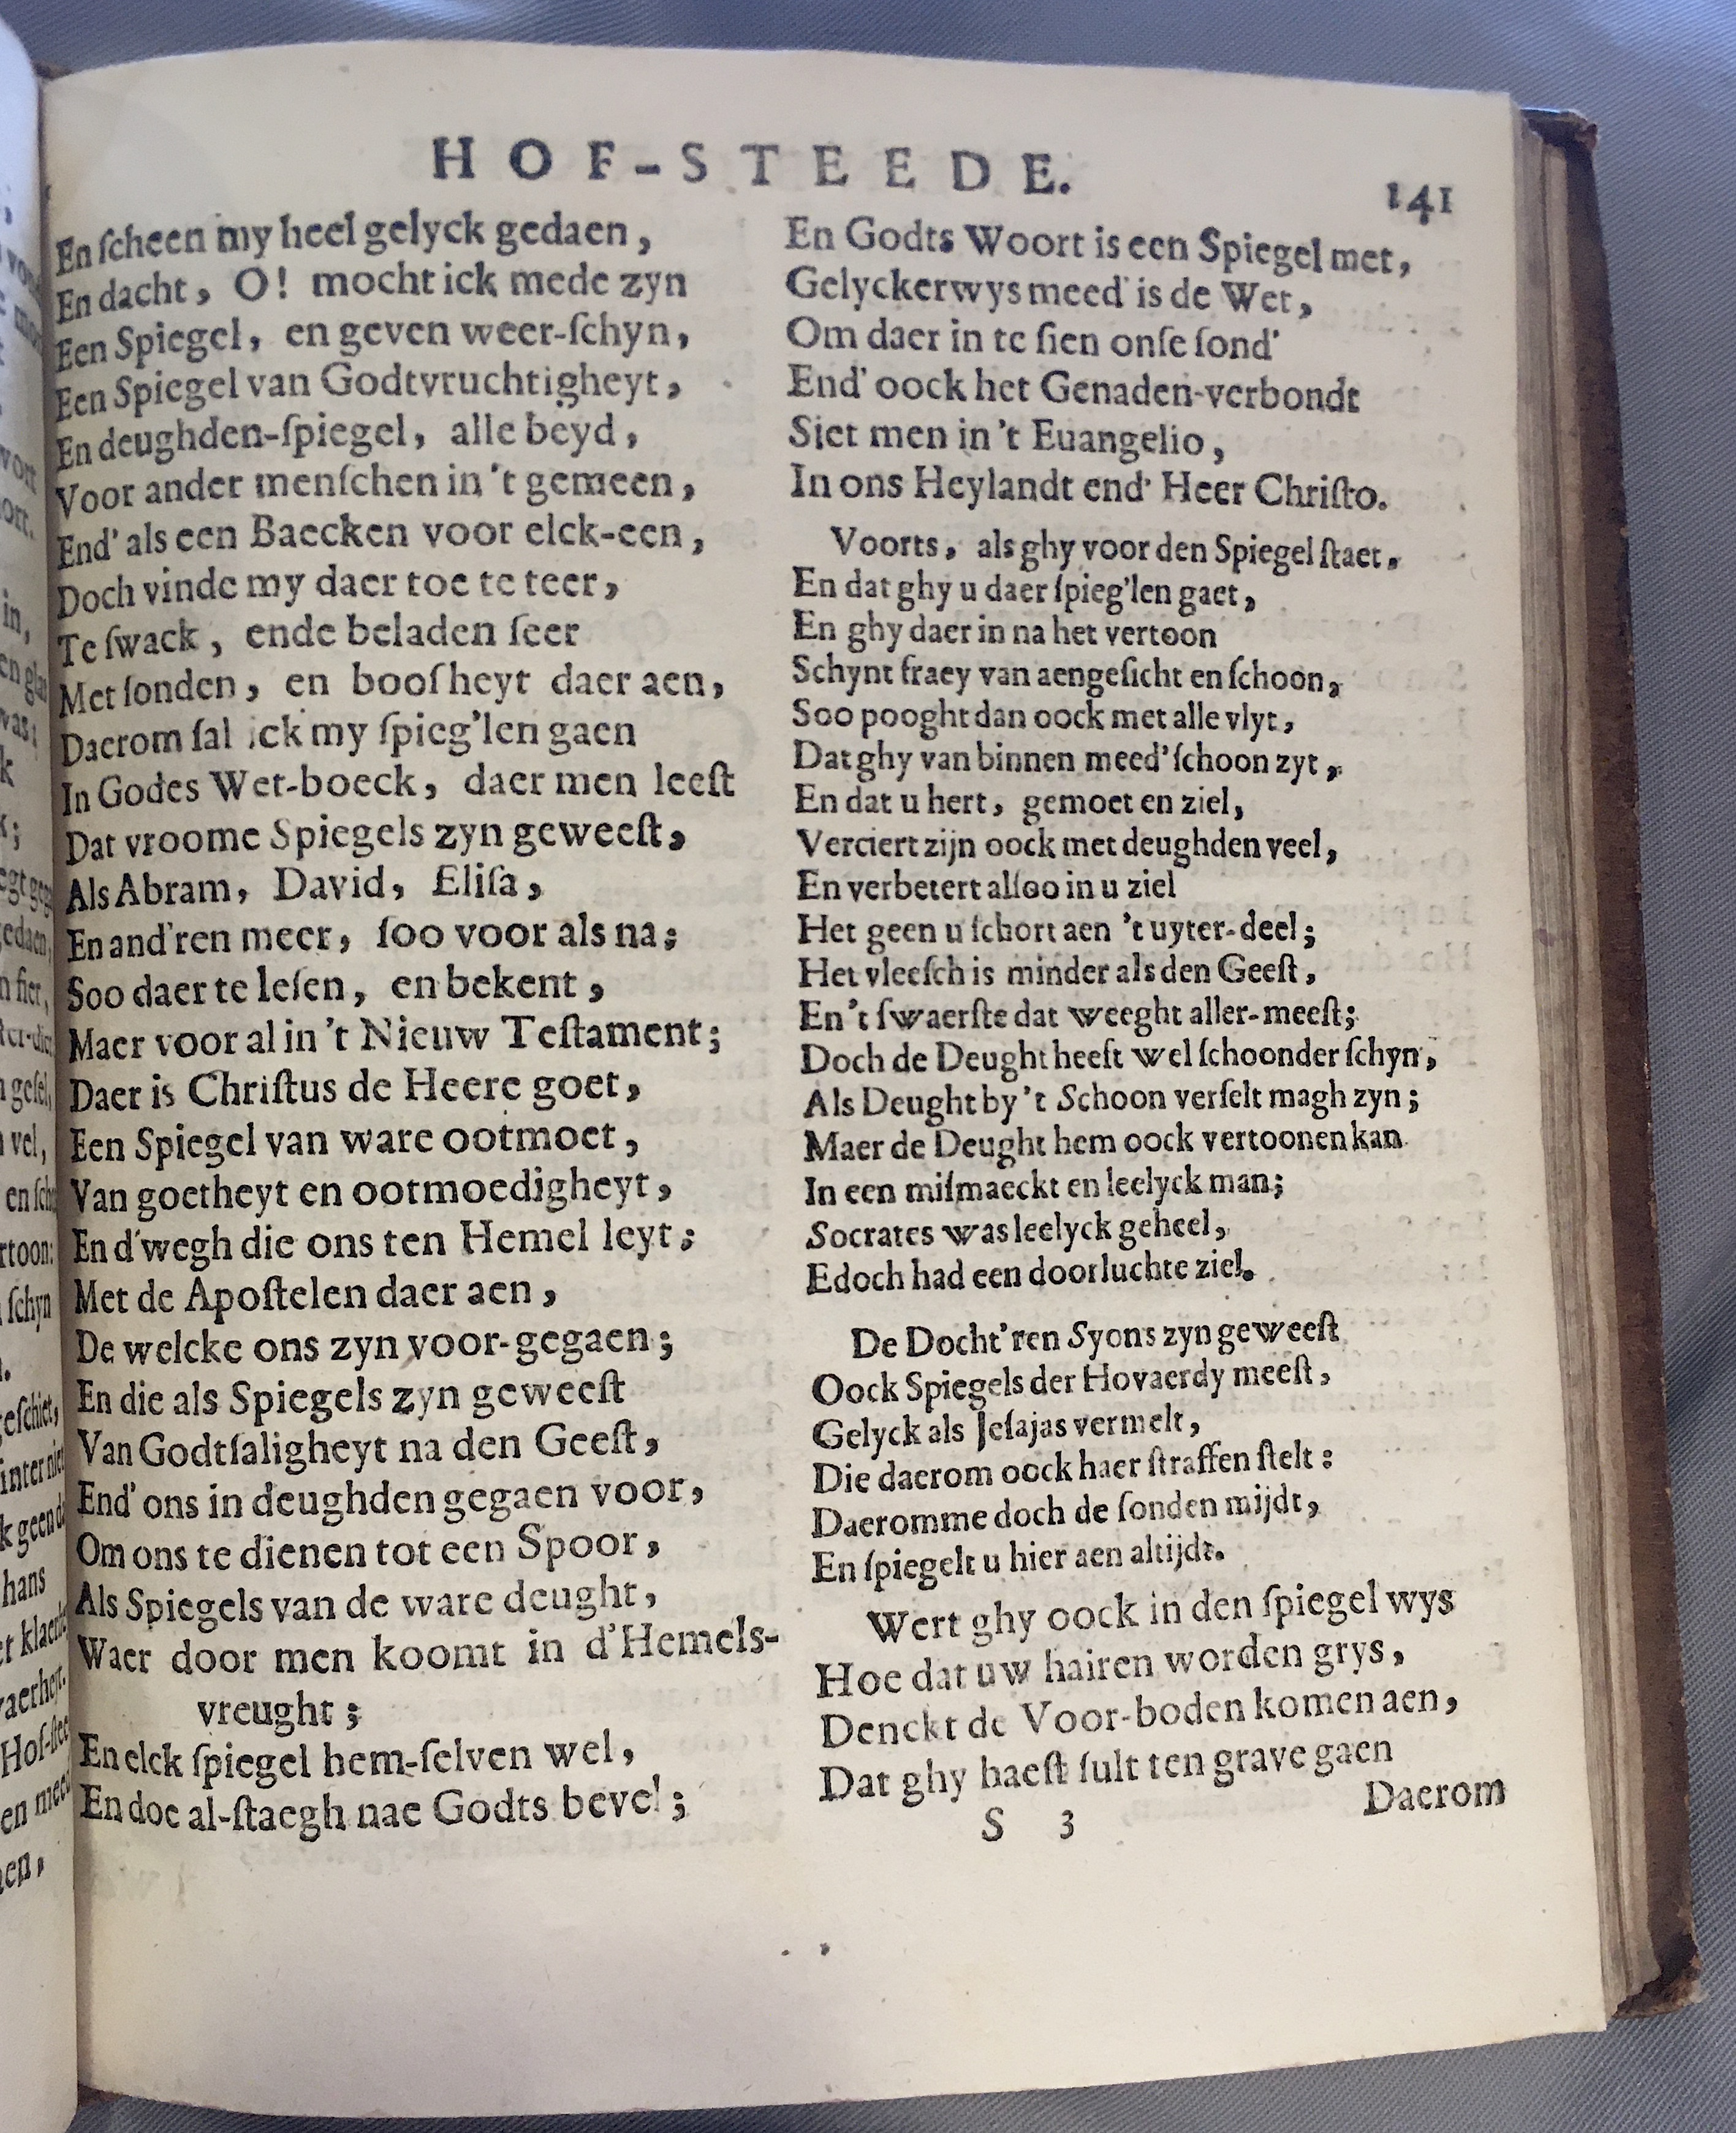 HOF-STEEDE.
141
En ſcheen my heel gelyck gedaen,
En dacht, O! mocht ick mede zyn
Een Spiegel, en geven weer-ſchyn,
Een Spiegel van Godtvruchtigheyt,
En deughden-ſpiegel, alle beyd,
Voor ander menſchen in 't gemeen,
End' als een Baecken voor elck-een,
Doch vinde my daer toe te teer,
Te ſwack, ende beladen ſeer
Met ſonden, en booſheyt daer aen,
Daerom ſal ick my ſpieg'len gaen
In Godes Wet-boeck, daer men leeſt
Dat vroome Spiegels zyn geweeſt,
Als Abram, David, Eliſa,
En and'ren meer, ſoo voor als na;
Soo daer te leſen, en bekent,
Maer voor al in 't Nieuw Teſtament;
Daer is Chriſtus de Heere goet,
Een Spiegel van ware ootmoet,
Van goetheyt en ootmoedigheyt,
En d'wegh die ons ten Hemel leyt;
Met de Apoſtelen daer aen,
De welcke ons zyn voor-gegaen;
En die als Spiegels zyn geweeſt
Van Godtſaligheyt na den Geeſt,
End' ons in deughden gegaen voor,
Om ons te dienen tot een Spoor,
Als Spiegels van de ware deught,
Waer door men koomt in d'Hemels-
vreught;
En elck ſpiegel hem-ſelven wel,
En doe al-ſtaegh nae Godts bevel;
En Godts Woort is een Spiegel met,
Gelyckerwys meed' is de Wet,
Om daer in te ſien onſe ſond'
End' oock het Genaden-verbondt
Siet men in 't Euangelio,
In ons Heylandt end' Heer Chriſto.
Voorts, als ghy voor den Spiegel ſtaet,
En dat ghy u daer ſpieg'len gaet,
En ghy daer in na het vertoon
Schynt fraey van aengeſicht en ſchoon,
Soo pooght dan oock met alle vlyt,
Dat ghy van binnen meed' ſchoon zyt,
En dat u hert, gemoet en ziel,
Verciert zijn oock met deughden veel,
En verbetert alſoo in u ziel
Het geen u ſchort aen 't uyter-deel;
Het vleeſch is minder als den Geeſt,
En 't ſwaerſte dat weeght aller-meeſt;
Doch de Deught heeft wel ſchoonder ſchyn,
Als Deught by 't Schoon verſelt magh zyn;
Maer de Deught hem oock vertoonen kan
In een miſmaeckt en leelyck man;
Socrates was leelyck geheel,
Edoch had een doorluchte ziel.
De Docht'ren Syons zyn geweeſt
Oock Spiegels der Hovaerdy meeſt,
Gelyck als Jeſajas vermelt,
Die daerom oock haer ſtraffen ſtelt:
Daeromme doch de ſonden mijdt,
En ſpiegelt u hier aen altijdt.
Wert ghy oock in den ſpiegel wys
Hoe dat uw hairen worden grys,
Denckt de Voor-boden komen aen,
Dat ghy haeſt ſult ten grave gaen
S 3
Daerom